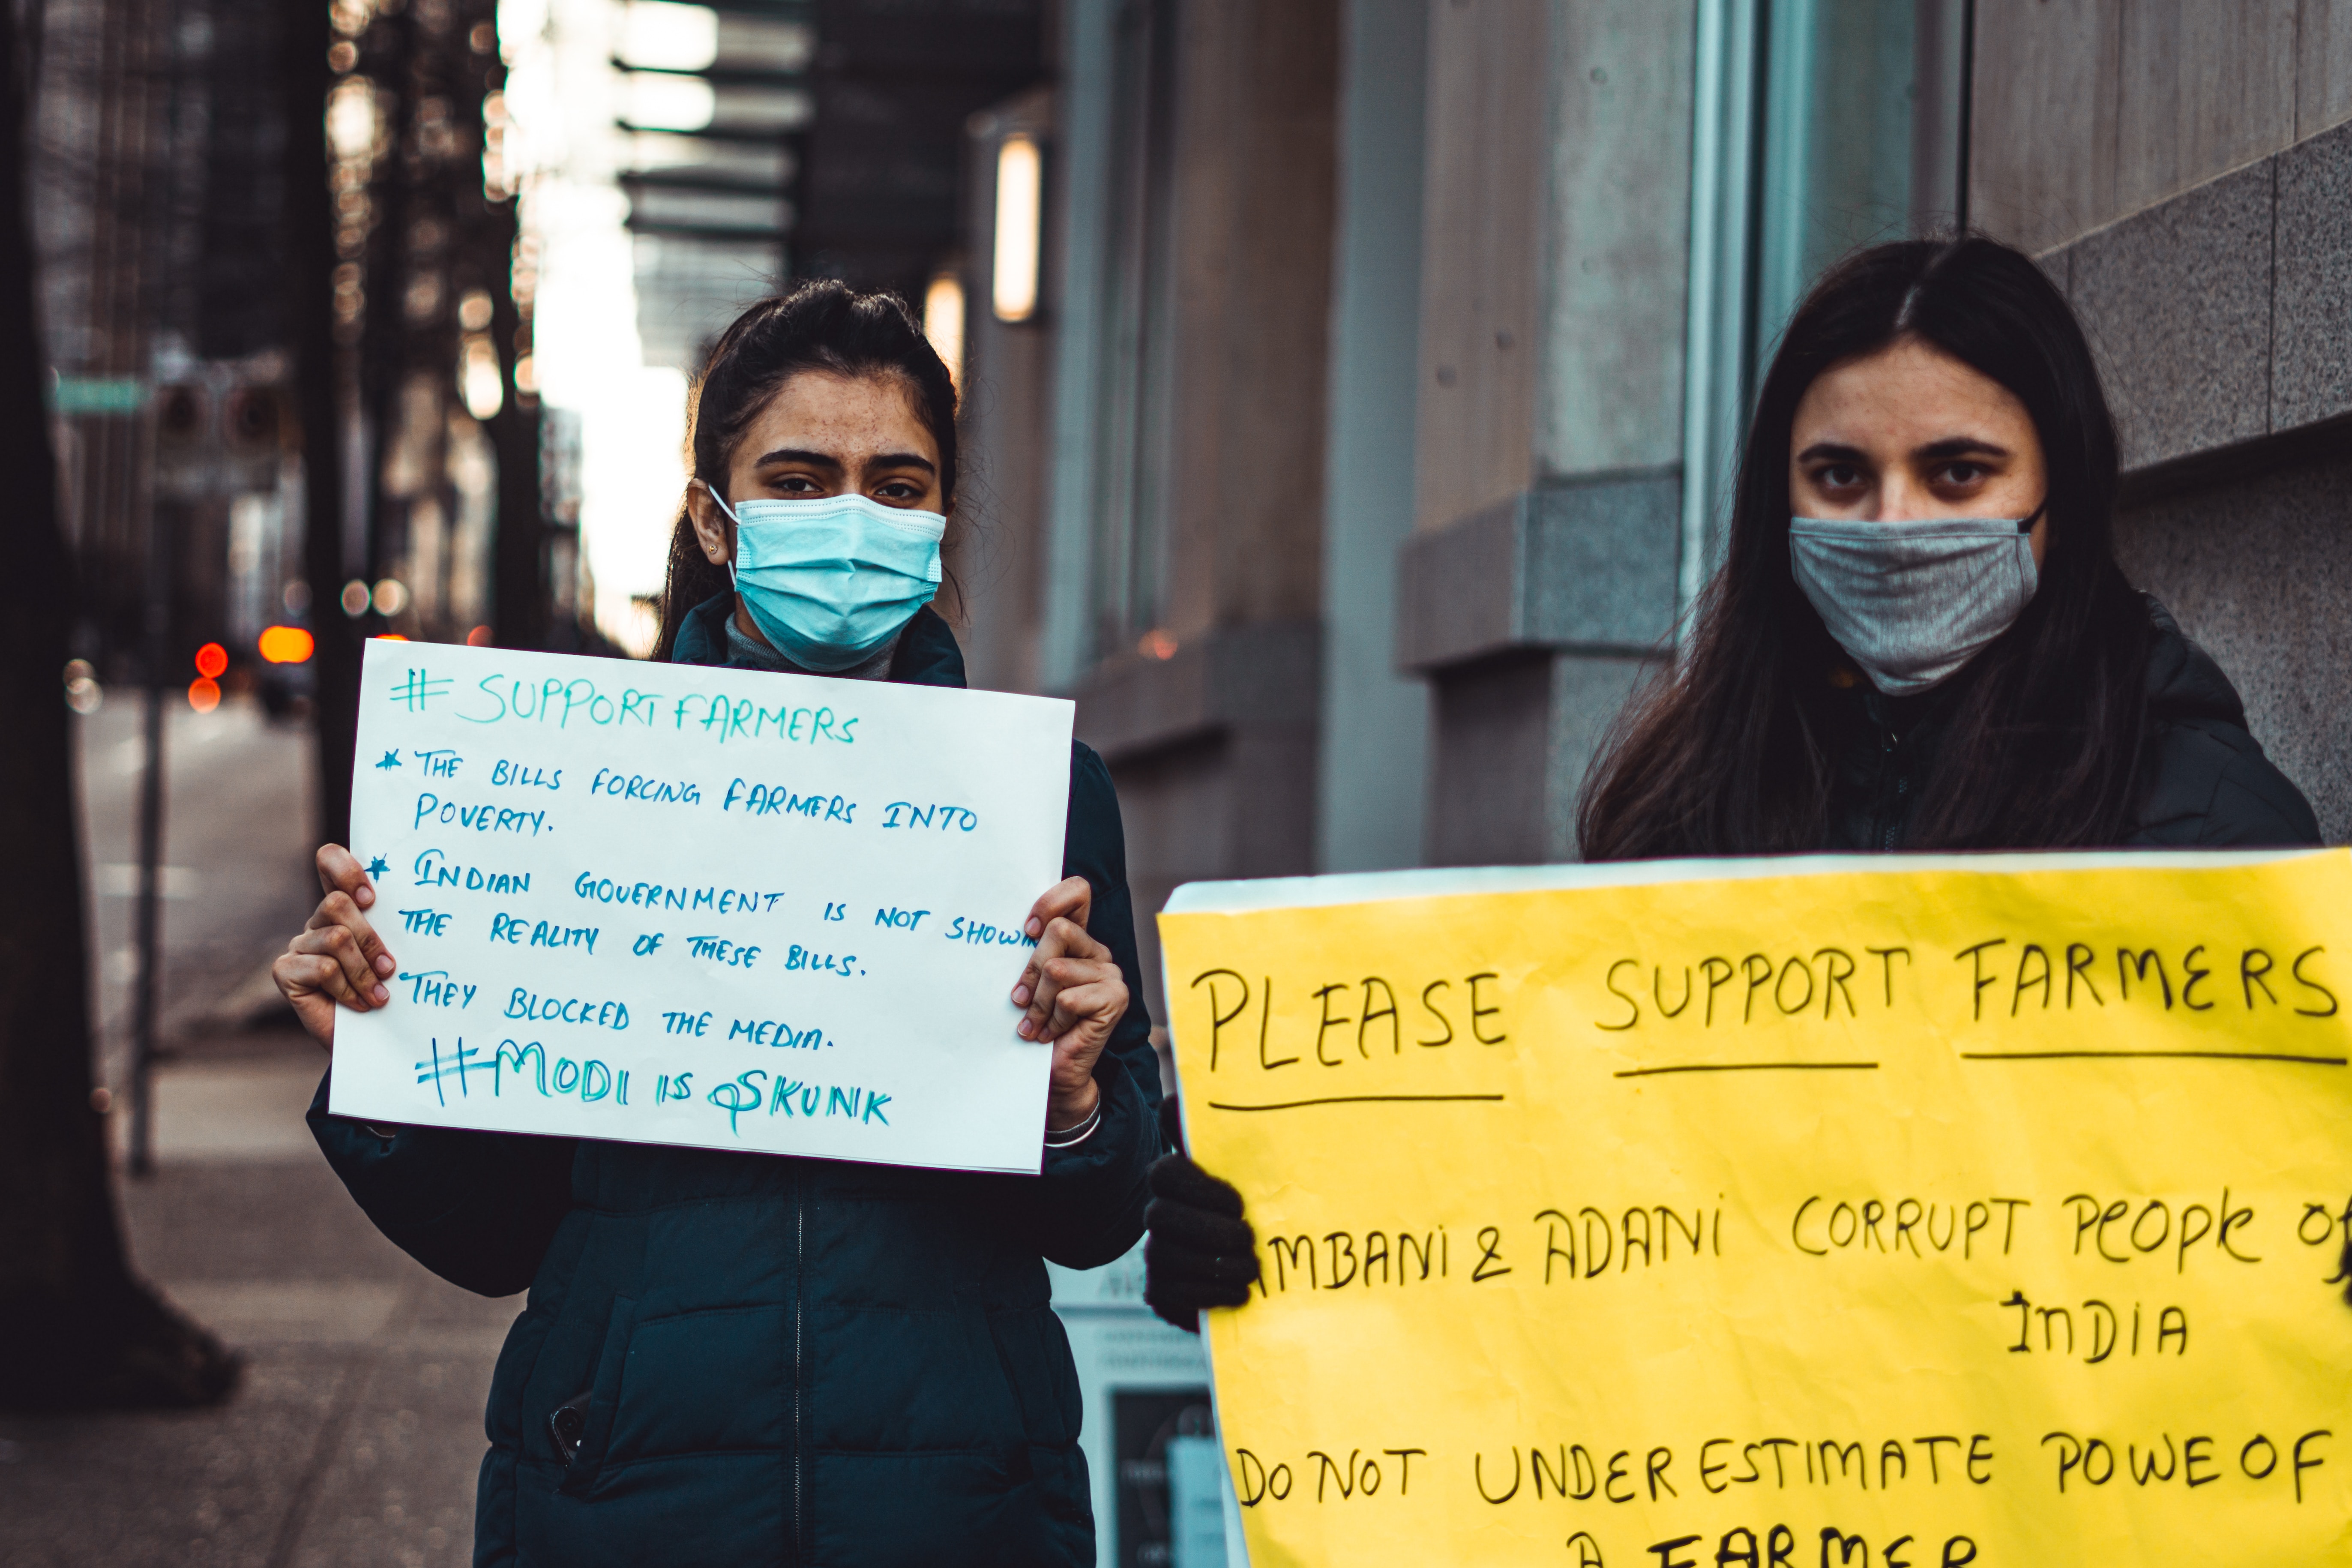 # SUPPORT FARMERS
* THE BILLS FORCING FARMERS INTO
POVERTY.
* INDIAN GOVERNMENT IS NOT SHOWIN
THE REALITY OF THESE BILLS.
THEY BLOCKED THE MEDIA.
#MODI IS SKUNK
PLEASE SUPPORT FARMERS
AMBANi & ADANi CORRUPT PeOPle Of
INDiA
DO NOT UNDERESTIMATE POWE OF
A FARMER